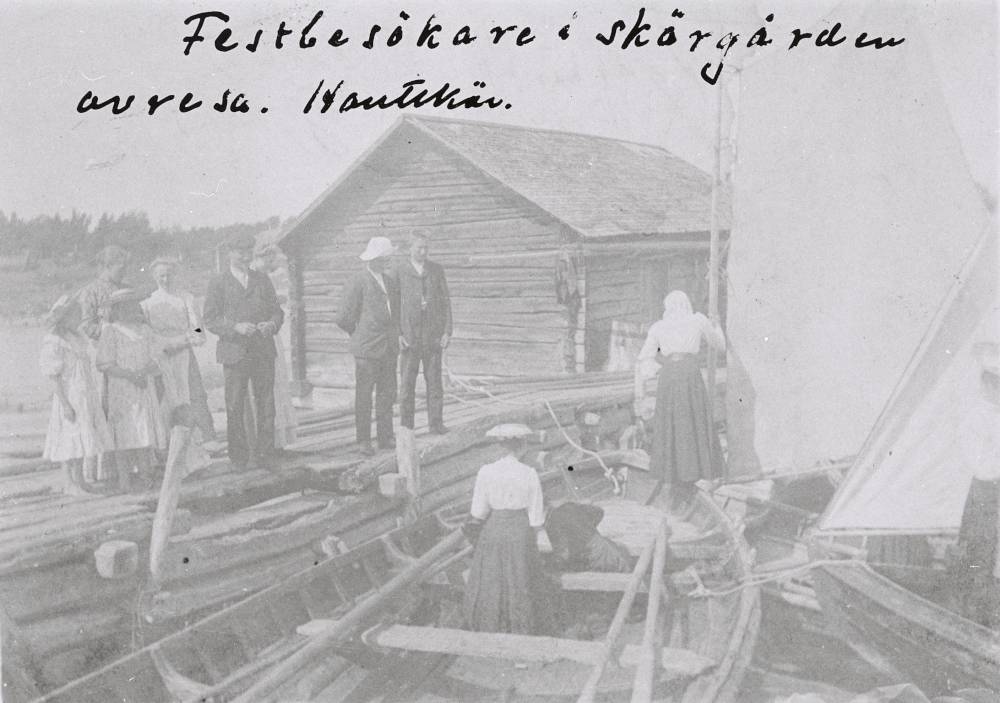 Festbesökare i skärgården
avresa. Hauttkär.